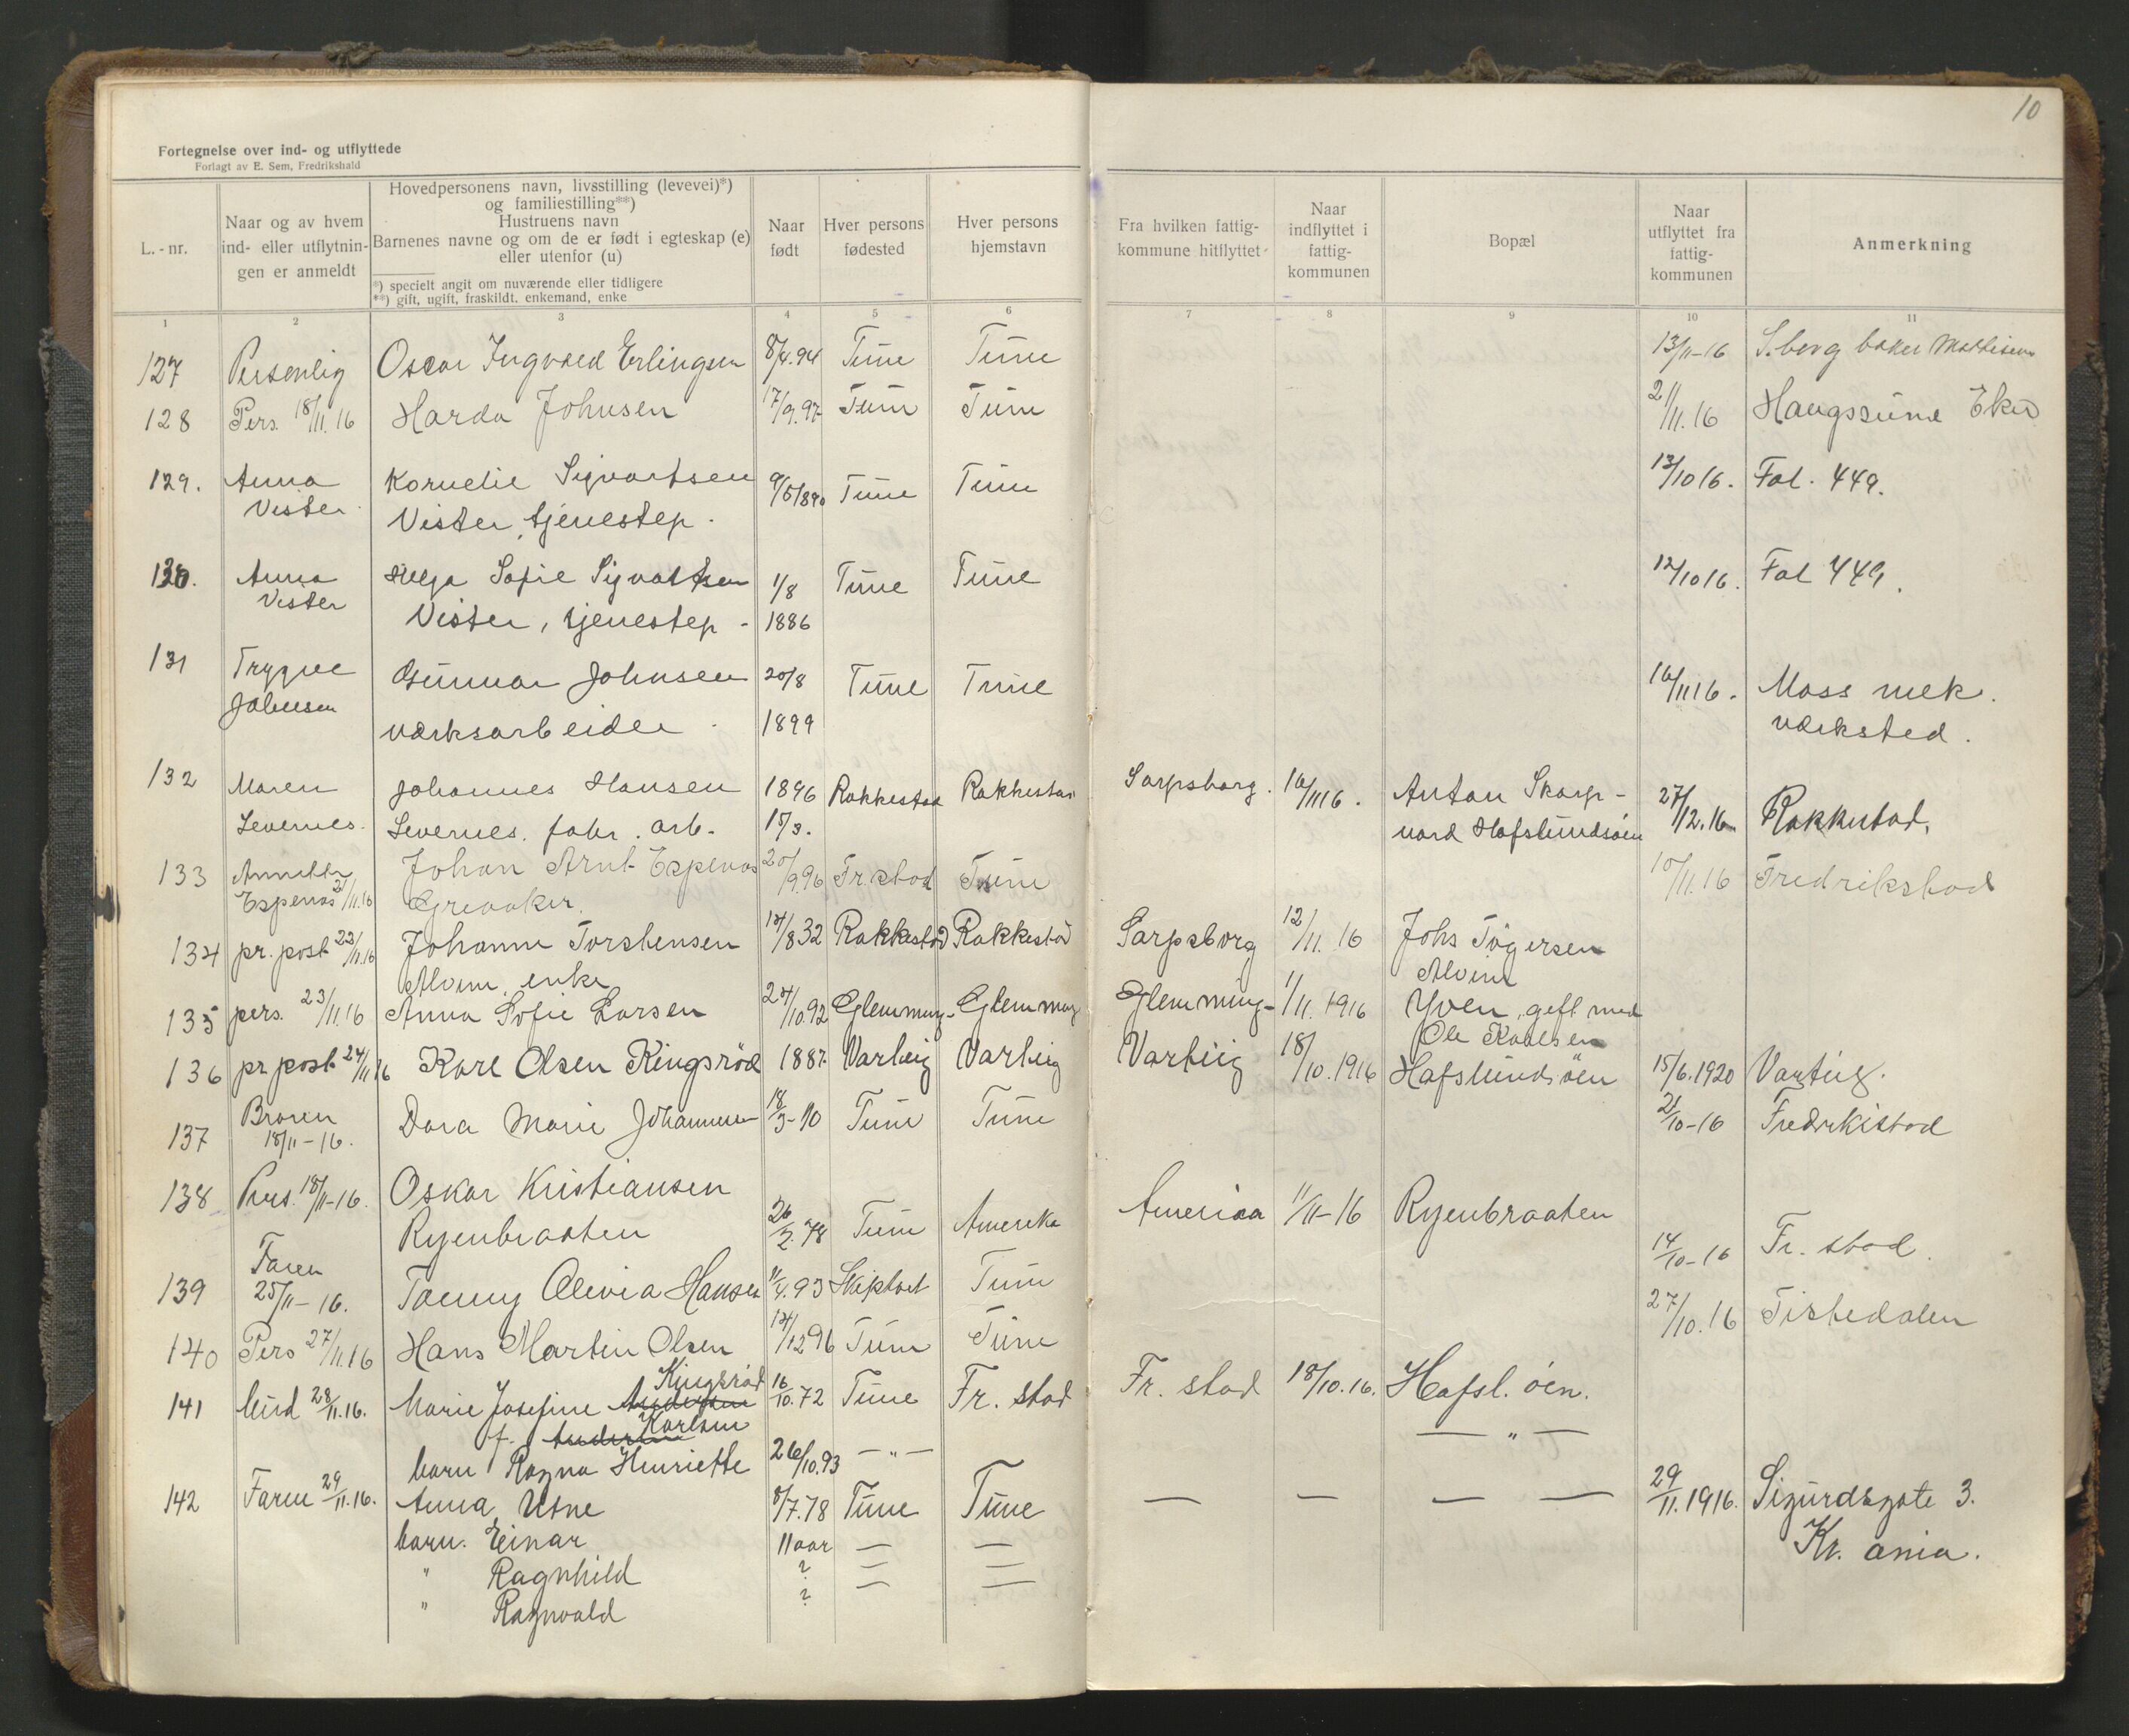 10
Fortegnelse over ind- og utflyttede
Forlagt av E. Sem, Fredrikshald
L.-nr.
Naar og av hvem
ind- eller utflytnin-
gen er anmeldt
Hovedpersonens navn, livsstilling (levevei)*)
og familiestilling**)
Hustruens navn
Barnenes navne og om de er født i egteskap (e)
eller utenfor (u)
*) specielt angit om nuværende eller tidligere
**) gift, ugift, fraskildt, enkemand, enke
Naar
født
Hver persons
fødested
Hver persons
hjemstavn
Fra hvilken fattig-
kommune hitflyttet
Naar
indflyttet i
fattig-
kommunen
Bopæl
Naar
utflyttet fra
fattig-
kommunen
Anmerkning
1 2 3 4 5 6 7 8 9 10 11
127 Personlig Oscar Ingvald Erlingsen 8/4.94 Tune Tune 13/11-16 S.borg baker Mathisen
128 Pers. 18/11.16 Harda Johnsen 17/9.97 Tune Tune 21/11.16 Haugssund Eker
129. Anna Kornelie Sigvartsen 9/5 1890 Tune Tune 13/10 16. Fol. 449.
Vister Vister, tjenestep.
130. Anna Helga Sofie Sigvartsen 1/8 Tune Tune 12/10 16. Fol 449.
Vister Vister, tjenestep - 1886
131 Trygve Gunnar Johnsen 20/8 Tune Tune 16/11 16. Moss mek.
Johnsen værksarbeider 1899 værksted.
132 Maren Johannes Hansen 1896 Rakkestad Rakkestad Sarpsborg. 16/11 16. Anton Skarp- 27/12.16 Rakkestad.
Levernes. Levernes. fabr. arb. 15/3. nord Hafslundsøen
133 Annette Johan Arnt Espenæs 20/9.96 Fr.stad Tune 10/11.16 Fredrikstad
Espenæs 21/11.16 Greaaker.
134 pr. post 22/11.16 Johanne Torstensen 14/8 32 Rakkestad Rakkestad Sarpsborg 12/11.16 Johs Tøgersen
Alvim, enke Alvim
135 pers. 23/11.16 Anna Sofie Larsen 24/10.92 Glemming Glemming Glemming 1/11.1916 Yven, gift med
Ole Karlsen
136 pr post 24/11 16 Karl Olsen Kingsrød 1887 Varteig Varteig Varteig 18/10.1916 Hafslundsøen 15/6.1920 Varteig.
137 Broren Dora Marie Johannesen 18/3-10 Tune Tune 21/10-16 Fredrikstad
18/11-16.
138 Pers. 18/11-16. Oskar Kristiansen
Ryenbraaten 26/2.78 Tune Amerika America 11/11-16 Ryenbraaten
139 Faren Fanny Olivia Hansen 11/4.93 Skiptvet Tune 14/10-16 Fr. stad.
25/11-16.
140 Pers 27/11.16 Hans Martin Olsen 14/12 96 Tune Tune 27/10.16 Tistedalen
Kingsrød
141 28/11.16. Marie Josefine Andersen 16/10.72 Tune Fr. stad Fr. stad 18/10.16. Hafsl. øen.
f. Andersen Karlsen
barn Ragna Henriette 26/10.93 — " — — " —
142 Faren 29/11.16. Anna Utne 8/7.78 Tune Tune — — — — 29/11.1916. Sigurdsgate 3.
barn. Einar 11 aar — — Kr. ania.
" Ragnhild ? — —
" Ragnvald ? — —